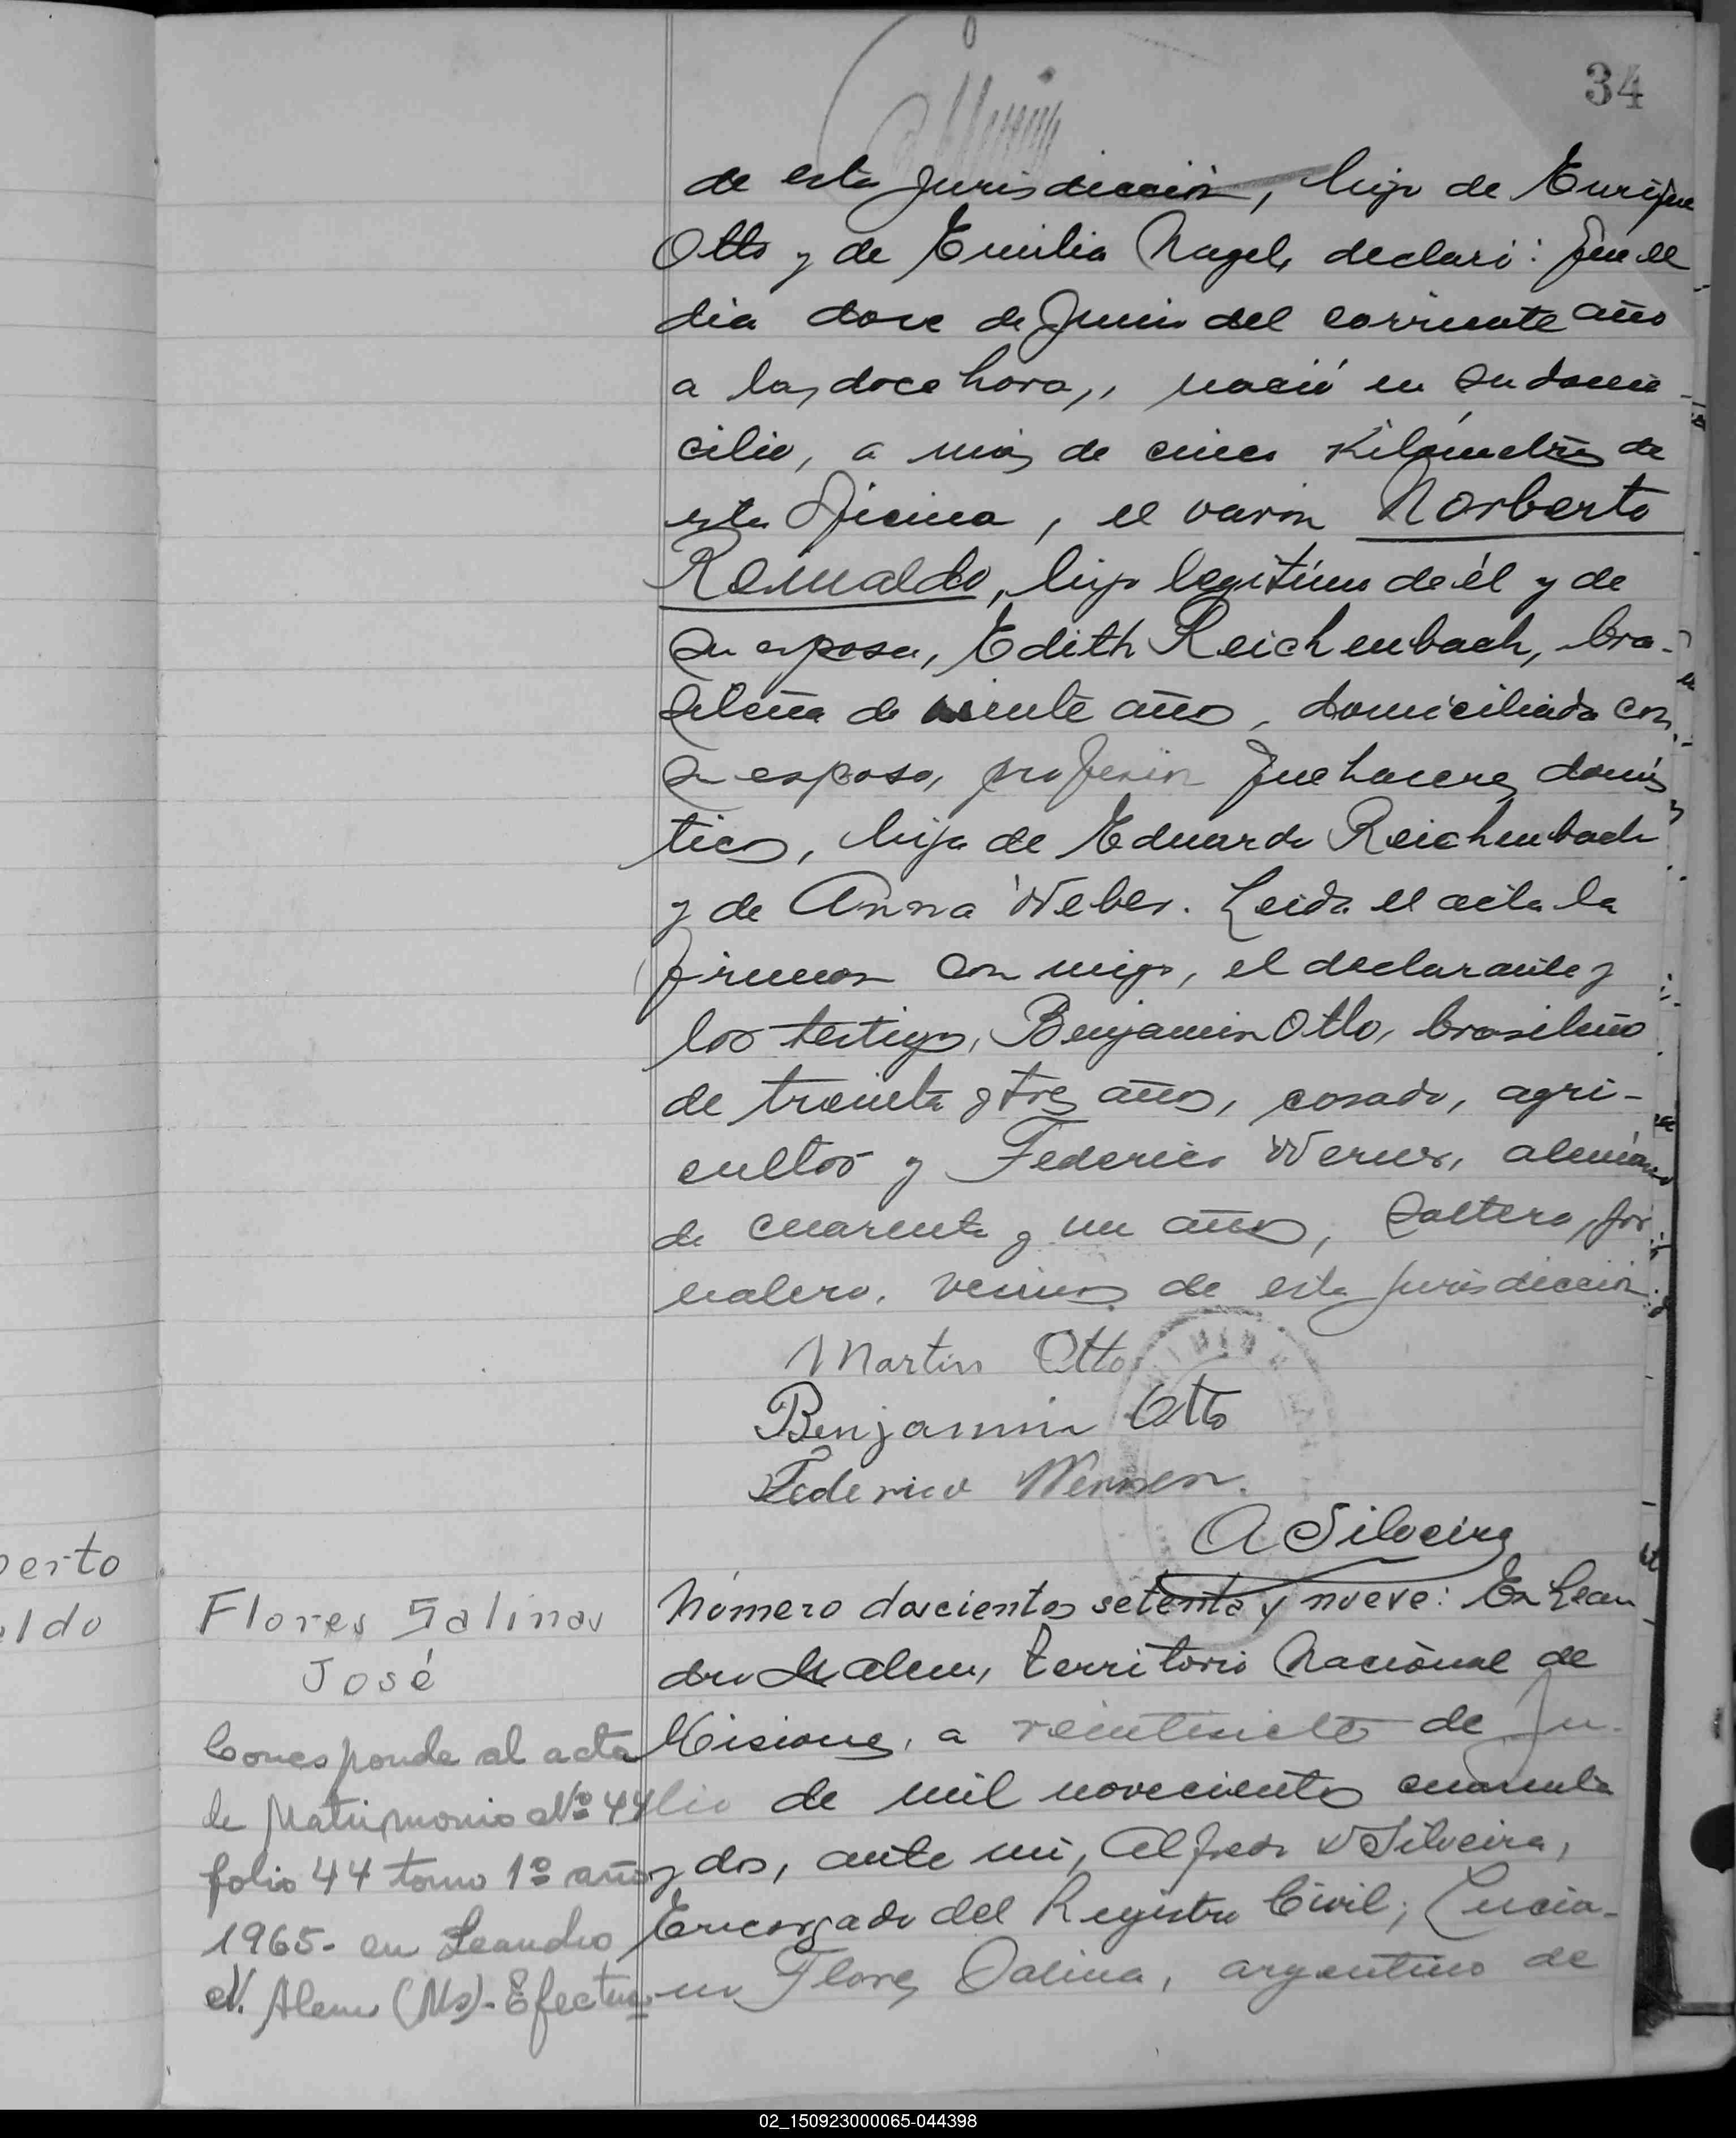 34
de esta jurisdicción, hijo de Enrique
Otto y de Emilia Nagel, declaró: Que el
dia doce de Junio del corriente año
a las doce horas, nació en su domi-
cilio, a más de cinco Kilómetros de
esta Oficina, el varón Norberto
Romualdo, hijo legítimo de él y de
su esposa, Edith Reichenbach, bra-
sileña de veinte años, domiciliada con
su esposo, profesión quehaceres domés
ticos, hija de Eduardo Reichenbach
y de Anna Weber. Leida el acta la
firmon con migo, el declarante y
los testigos, Benjamin Otto, brasileño
de treinta y tres años, casado, agri-
cultor y Federico Werner, alemán
de cuarenta y un años, soltero, jor
nalero, vecinos de esta jurisdicción
Martin Otto
Benjamin Otto
Federico Wenner.
A Silveira
berto
aldo
Flores Salinas
José
Corresponde al acta
de Matrimonio Nº 44
folio 44 tomo 1º año
1965- en Leandro
N. Alem (Ms)- Efectua
Número doscientos setenta y nueve: En Lean
dro N Alem, territorio Nacional de
Misiones, a veintisiete de Ju-
lio de mil novecientos cuarenta
y dos, ante mi, Alfredo V Silveira,
Encargado del Registro Civil; Lucia-
no Flores Salina, argentino de
02_150923000065-044398